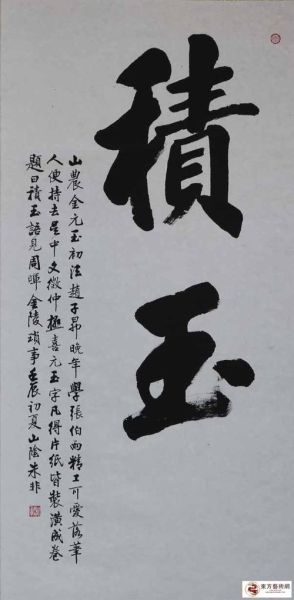 積玉
山農金元玉初法趙子昂晚年學張伯雨精工可愛落筆
人便持去吳中文徵仲極喜元玉字凡得片紙皆裝潢成卷
題曰積玉語見周暉金陵瑣事壬辰初夏山陰朱非
東方藝術網